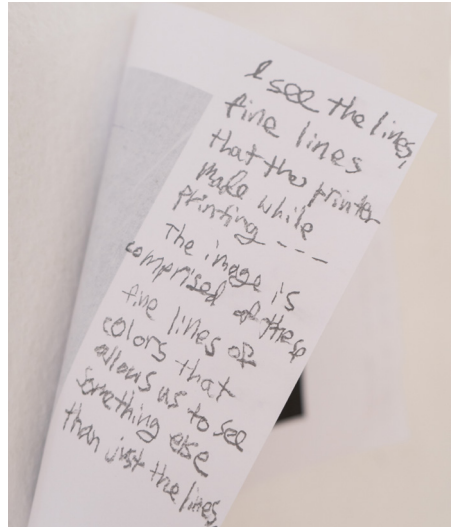 I see the lines,
fine lines
that the printer
make while
printing ---
The image is
comprised of these
fine lines of
colors that
allows us to see
something else
than just the lines.